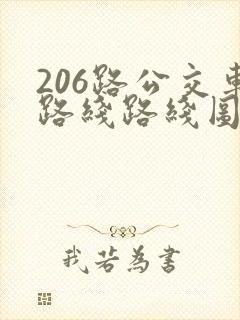 206路公交車
路綫路綫圖
我若為書